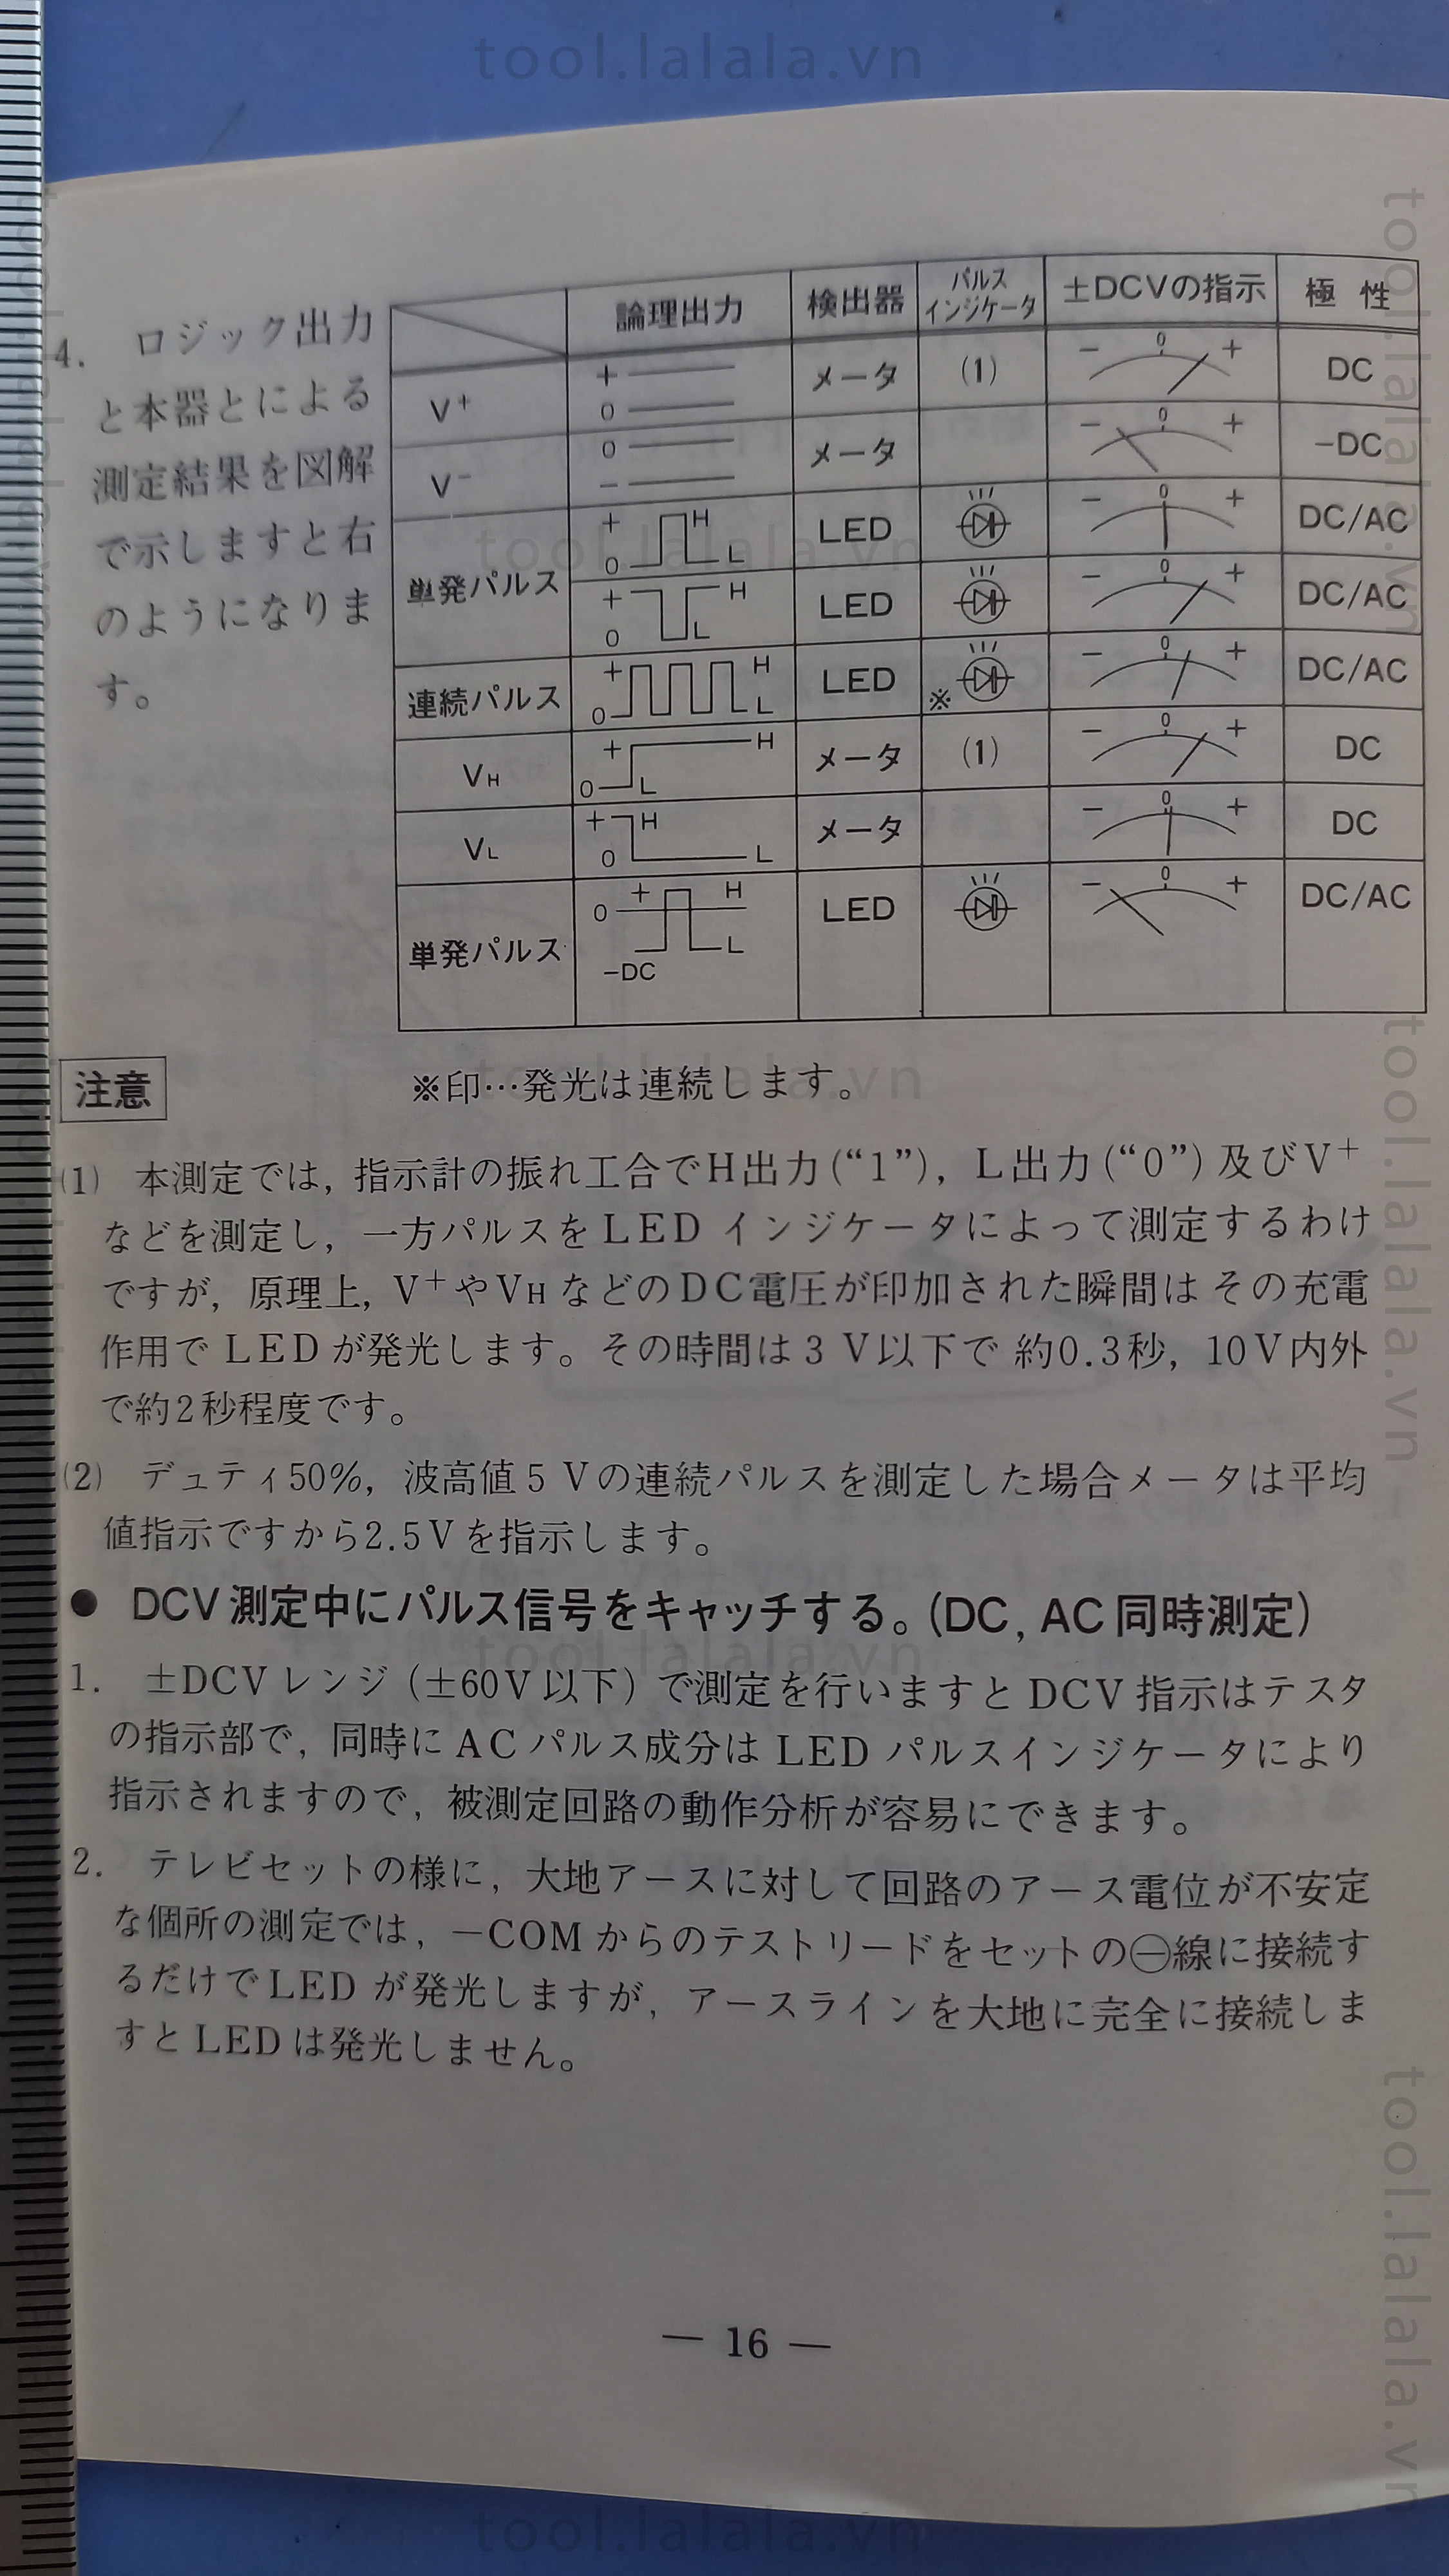 tool.lalala.vn
4. ロジック出力
と本器とによる
測定結果を図解
で示しますと右
のようになりま
す。
論理出力 検出器 パルスインジケータ ±DCVの指示 極 性
V+ + 0 メータ (1) − 0 + DC
V− 0 − メータ − 0 + −DC
単発パルス + 0 H L LED − 0 + DC/AC
+ 0 H L LED − 0 + DC/AC
連続パルス + 0 H L LED ※ − 0 + DC/AC
VH + 0 H L メータ (1) − 0 + DC
VL + 0 H L メータ − 0 + DC
単発パルス + 0 −DC H L LED − 0 + DC/AC
※印…発光は連続します。
注意
(1) 本測定では,指示計の振れ工合でH出力(“1”),L出力(“0”)及びV+
などを測定し,一方パルスをLED インジケータによって測定するわけ
ですが,原理上,V+やVHなどのDC電圧が印加された瞬間はその充電
作用でLEDが発光します。その時間は3 V以下で約0.3秒,10V内外
で約2秒程度です。
(2) デュティ50%,波高値5 Vの連続パルスを測定した場合メータは平均
値指示ですから2.5Vを指示します。
● DCV測定中にパルス信号をキャッチする。(DC, AC同時測定)
1. ±DCVレンジ(±60V以下)で測定を行いますとDCV指示はテスタ
の指示部で,同時にACパルス成分はLED パルスインジケータにより
指示されますので,被測定回路の動作分析が容易にできます。
2. テレビセットの様に,大地アースに対して回路のアース電位が不安定
な個所の測定では,−COMからのテストリードをセットの㊀線に接続す
るだけでLED が発光しますが,アースラインを大地に完全に接続しま
すとLEDは発光しません。
— 16 —
tool.lalala.vn
tool.lalala.vn
tool.lalala.vn
tool.lalala.vn
tool.lalala.vn
tool.lalala.vn
tool.lalala.vn